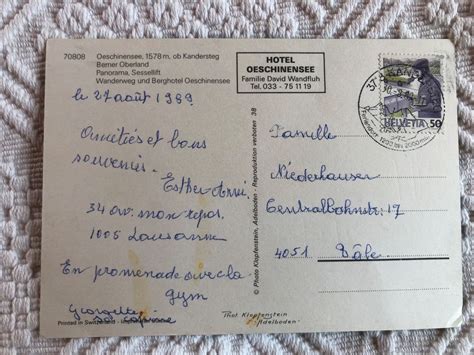 70808 Oeschinensee, 1578 m, ob Kandersteg
Berner Oberland
Panorama, Sessellift
Wanderweg und Berghotel Oeschinensee
HOTEL
OESCHINENSEE
Familie David Wandfluh
Tel. 033 - 75 11 19
HELVETIA 50
le 27 août 1989
Amitiés et bons
souvenirs.
Esther-Anni
34 av. mon repos
1005 Lausanne
En promenade avec la
gym
Printed in Switzerland
© Photo Klopfenstein, Adelboden - Reproduktion verboten 38
Famille
Niederhauser
Centralbahnstr. 17
4051 Bâle
Phot. Klopfenstein
Adelboden